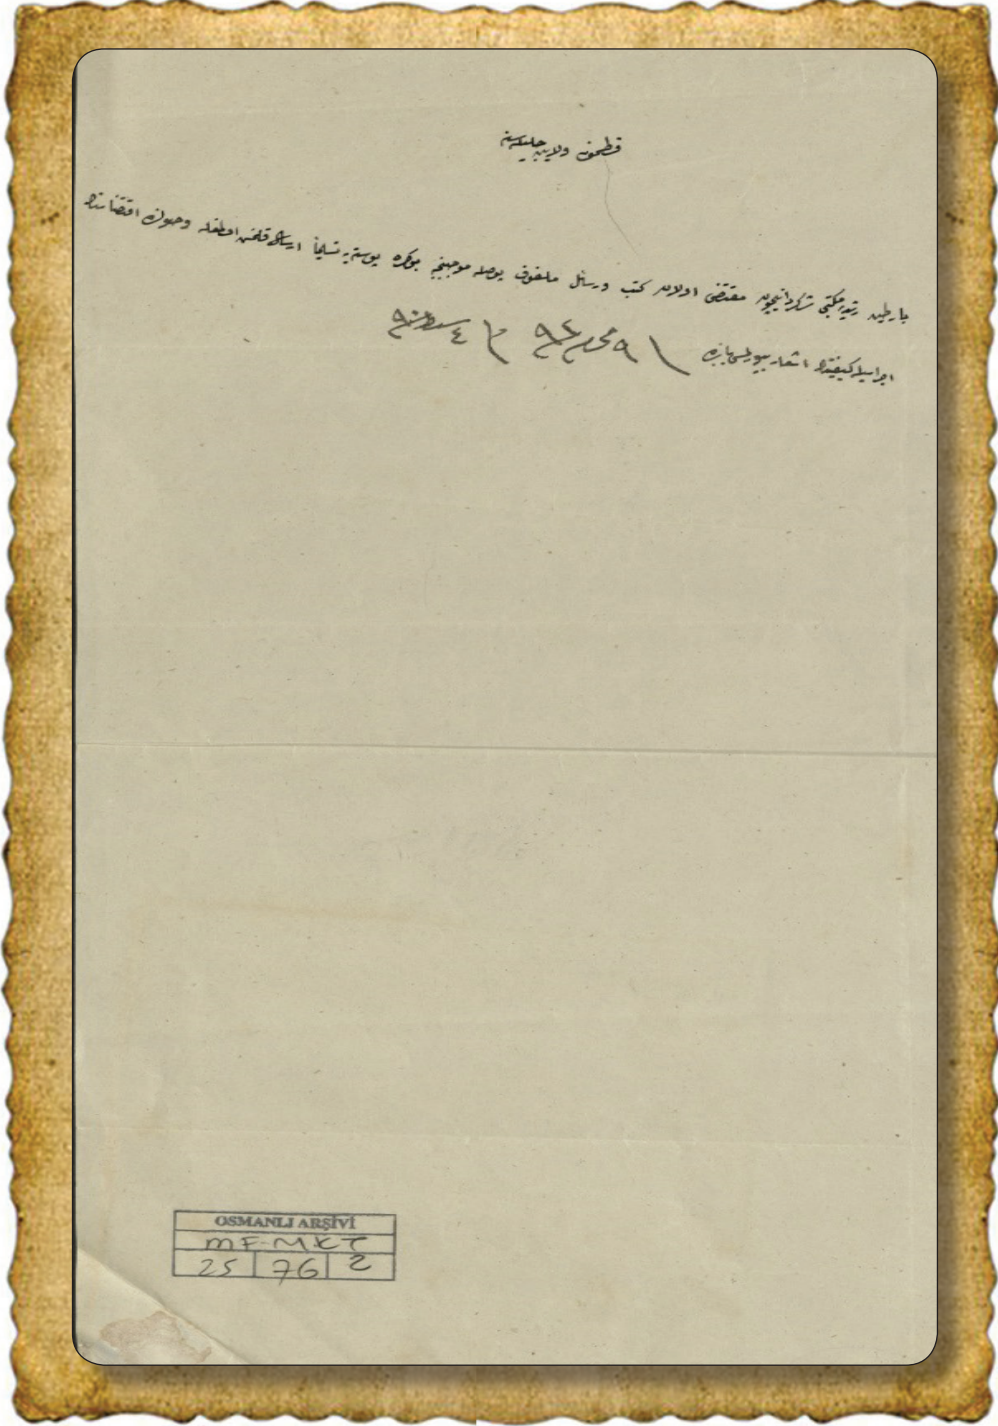 قسطمونی ولایت جلیله‌سنه
بارطین رشدیه مکتبی شاکردانیچون مقتضی اولان کتب و رسائل ملفوف پوصله موجبنجه بوکره پوسته‌یه تسلیماً ارسال قلنمش اولمغله وصولنده اقتضاسنك
اجراسیله کیفیتك اشعار بیورلمسی بابنده
١٩ محرم ٩٢
OSMANLI ARŞİVİ
MF-MKT
25 76 2